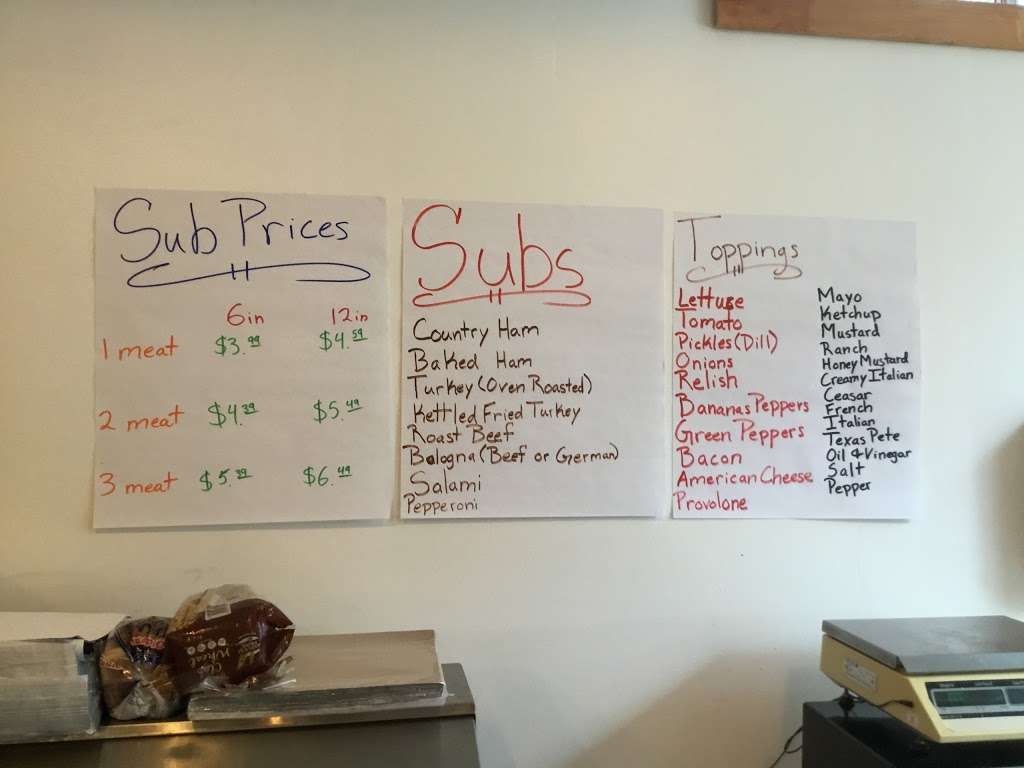 Sub Prices
6in 12in
1 meat $3.99 $4.59
2 meat $4.39 $5.49
3 meat $5.39 $6.49
Subs
Country Ham
Baked Ham
Turkey (Oven Roasted)
Kettled Fried Turkey
Roast Beef
Bologna (Beef or German)
Salami
Pepperoni
Toppings
Lettuse
Tomato
Pickles (Dill)
Onions
Relish
Bananas Peppers
Green Peppers
Bacon
American Cheese
Provolone
Mayo
Ketchup
Mustard
Ranch
Honey Mustard
Creamy Italian
Ceasar
French
Italian
Texas Pete
Oil & Vinegar
Salt
Pepper
Wheat